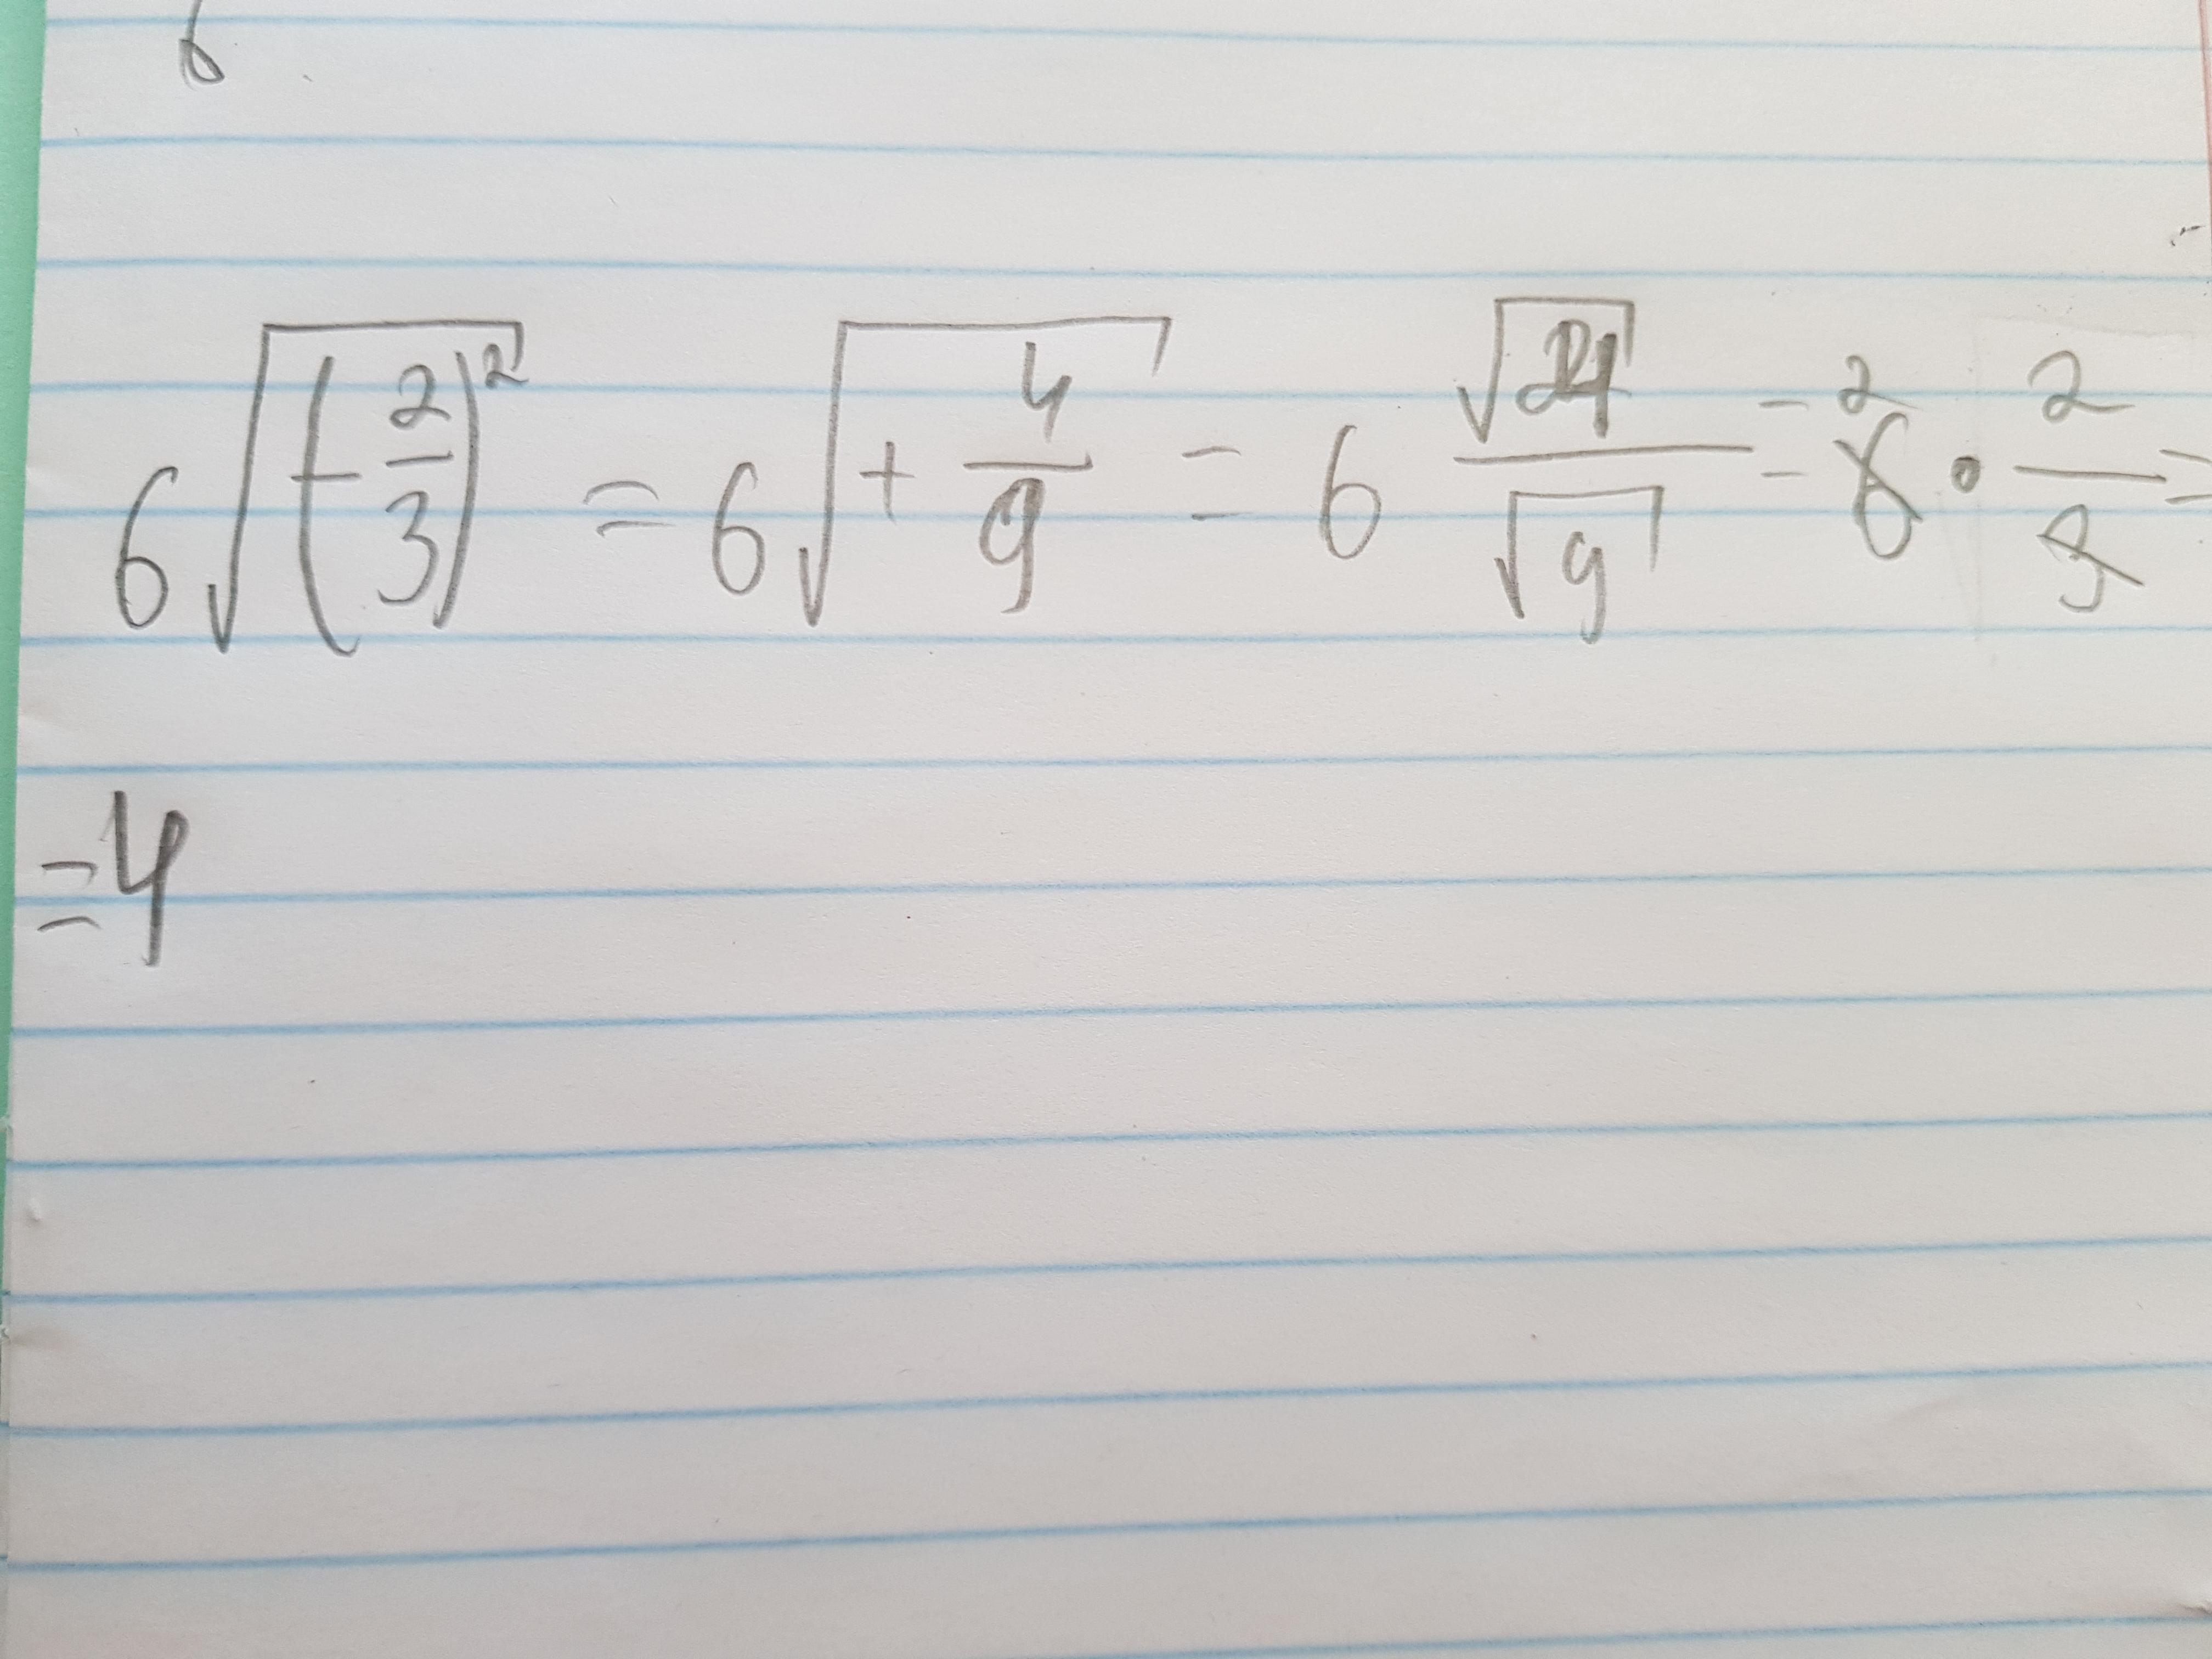 6
6√(-2/3)² = 6√+4/9 = 6 √4/√9 = 6 2 • 2/3 =
= 4